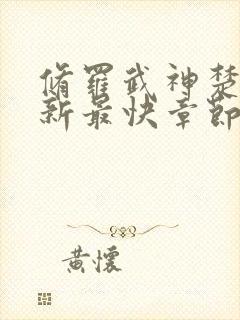 脩羅武神楚
新最快章節
黃懷